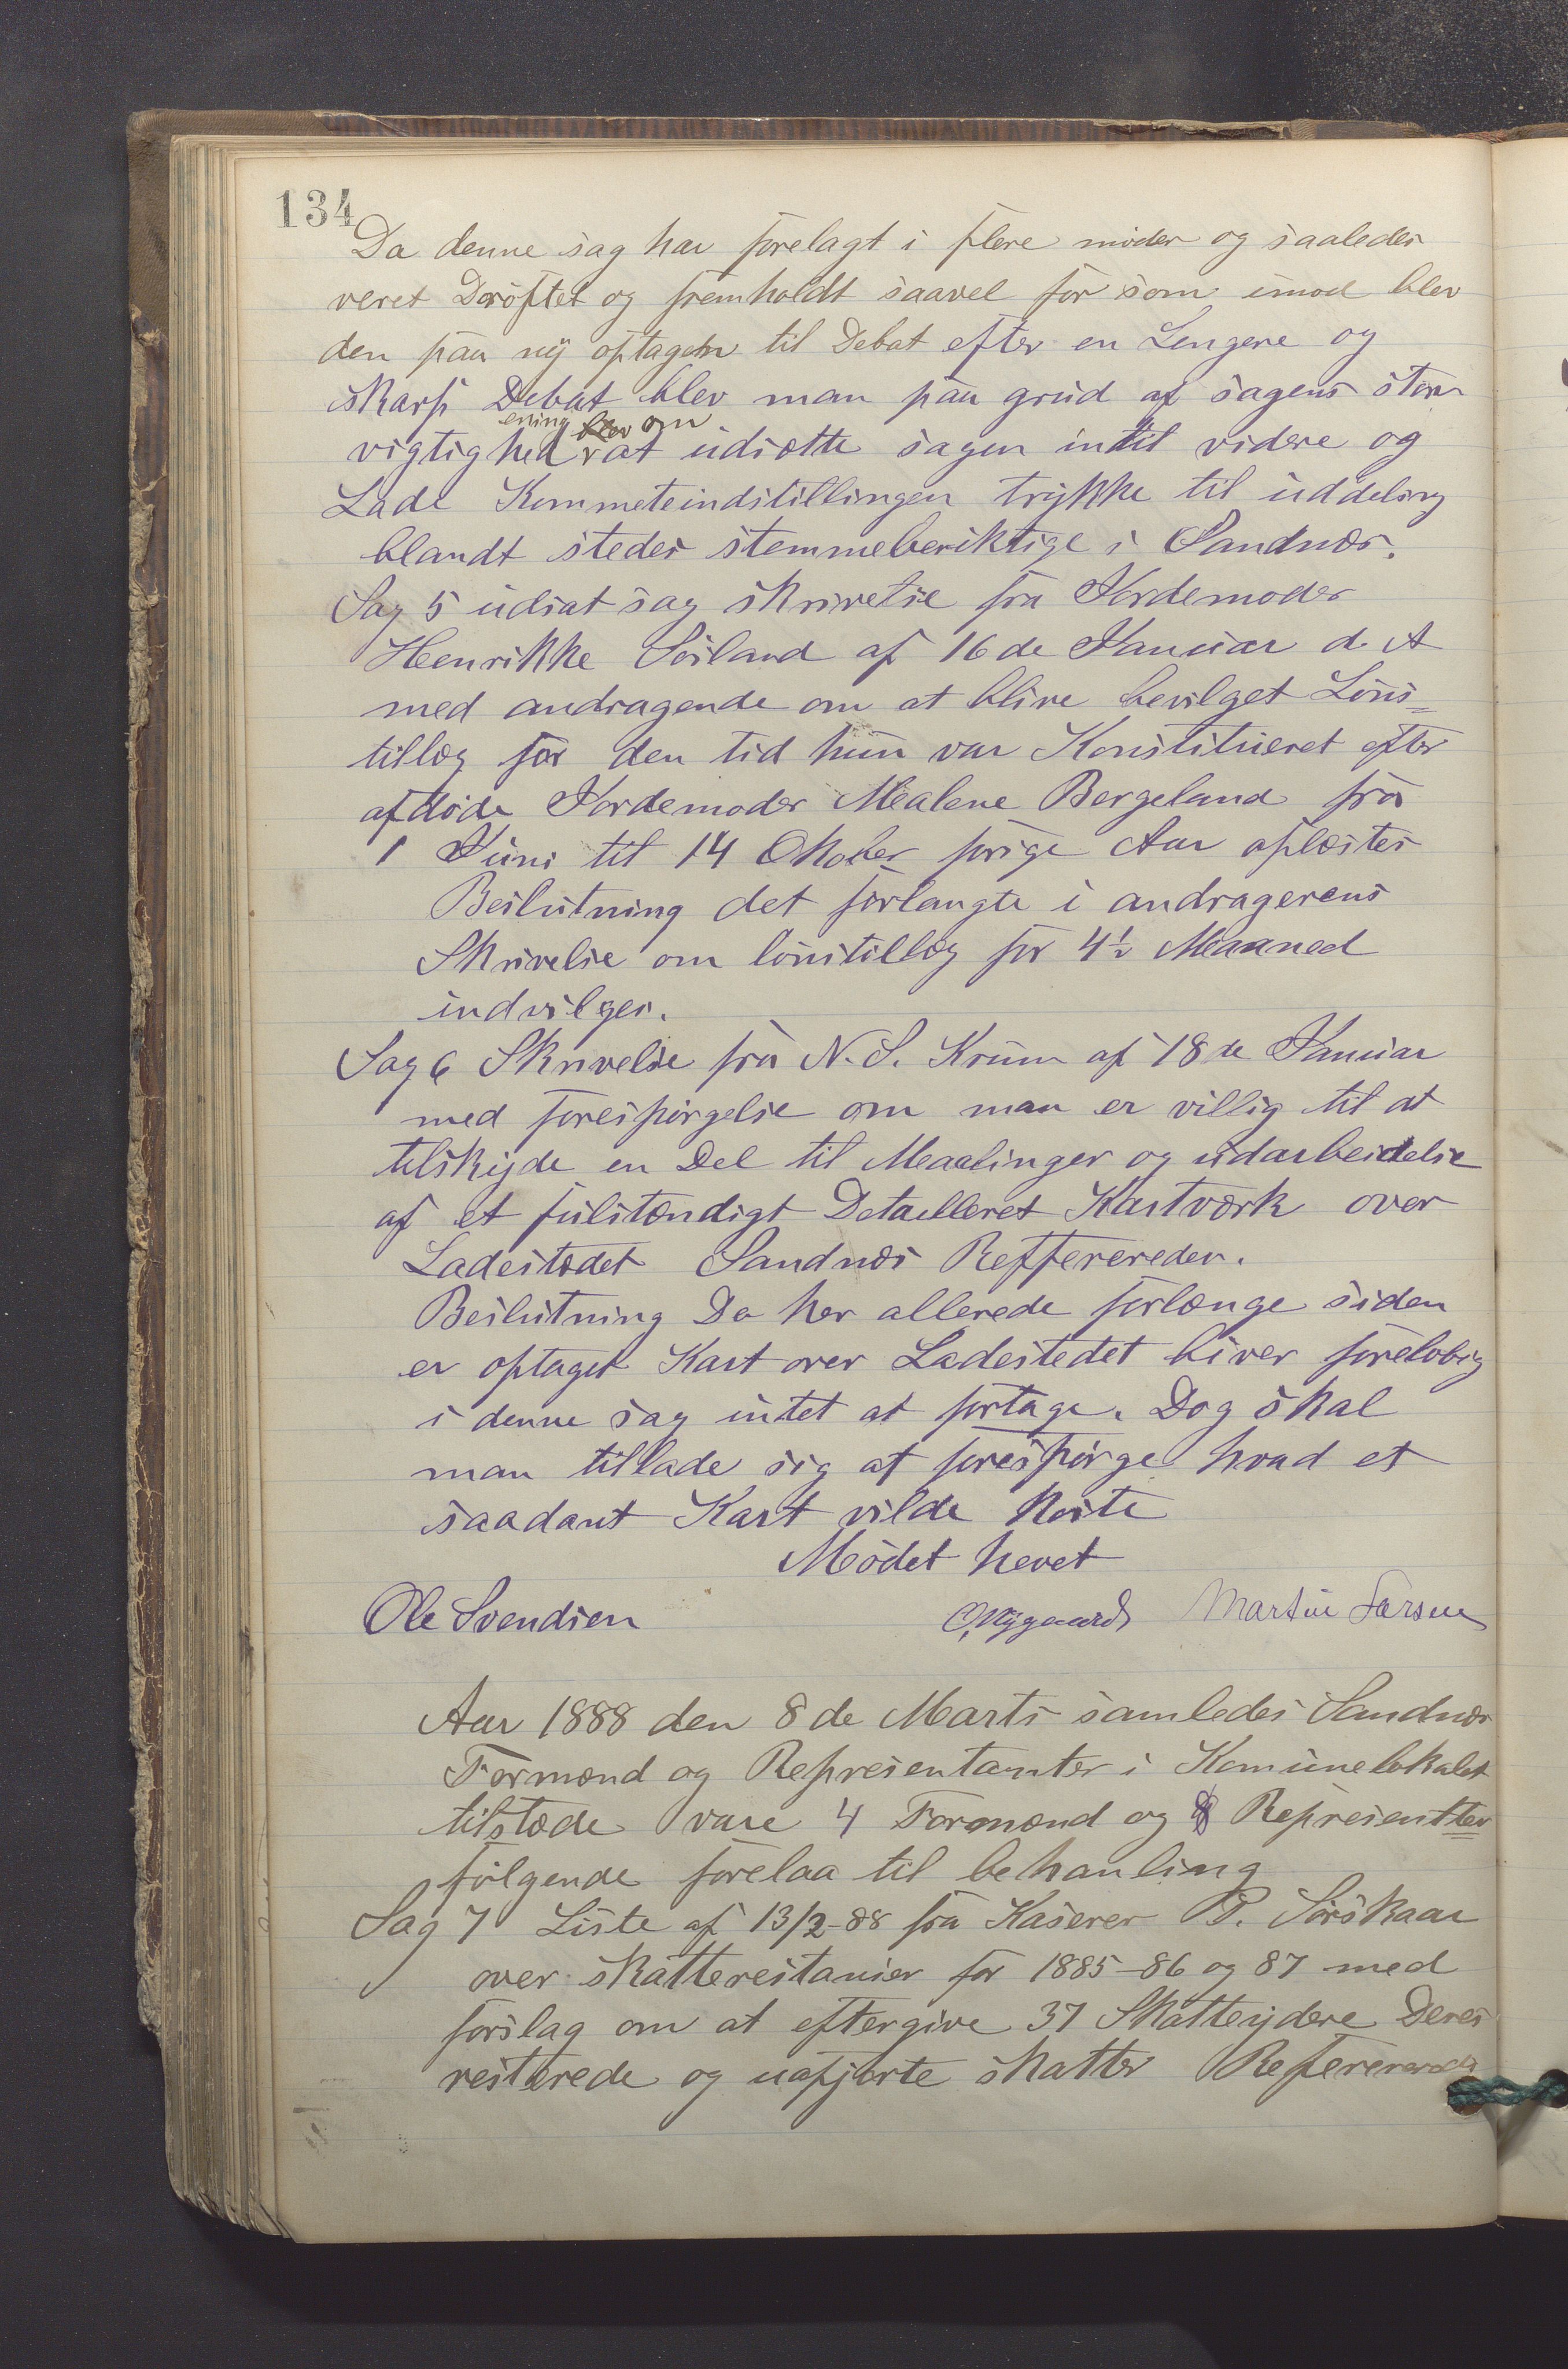 134
Da denne sag har forelagt i flere møder og saaledes
veret Drøftet og fremholdt saavel for som imod blev
den paa ny optagen til Debat efter en Lengere og
skarp Debat blev man paa grud af sagens store
ening blev om
vigtighed at udsætte sagen intil videre og
Lade Kommeteindstillingen trykke til uddeling
blandt stedes stemmeberiktige i Sandnæs.
Sag 5 udsat sag skrivelse fra Jordemoder
Henrikke Soiland af 16de Januar d. A
med andragende om at blive bevilget Løns=
tillæg for den tid hun var Konstitueret efter
afdøde Jordemoder Malene Bergeland fra
1 Juni til 14 Oktober forige Aar oplæstes
Beslutning det forlangte i andragerens
Skrivelse om lønstillæg for 4½ Maaned
indvilges.
Sag 6 Skrivelse fra N. S. Krum af 18de Januar
med forespørgelse om man er villig til at
tilskyde en Del til Maalinger og udarbeidelse
af et fulstændigt Detaelleret Kartværk over
Ladestædet Sandnæs Refferereder.
Beslutning Da her allerede forlænge siden
er optaget Kart over Ladestedet bliver foreløbig
i denne sag intet at fortage. Dog skal
man tillade sig at forespørge hvad et
saadant Kart vilde koste
Mødet hevet
Ole Svendsen O. Nygaard Martin Larsen
Aar 1888 den 8de Marts samledes Sandnæs
Formænd og Representanter i Komunelokalet
tilstæde vare 4 Formænd og 8 Representter
følgende forelaa til behanling
Sag 7 Liste af 13/2-88 fra Kaserer P. Sørskaar
over skatterestanser for 1885-86 og 87 med
forslag om at eftergive 37 Skatteydere Deres
resterede og uafgjorte skatter Refereredes